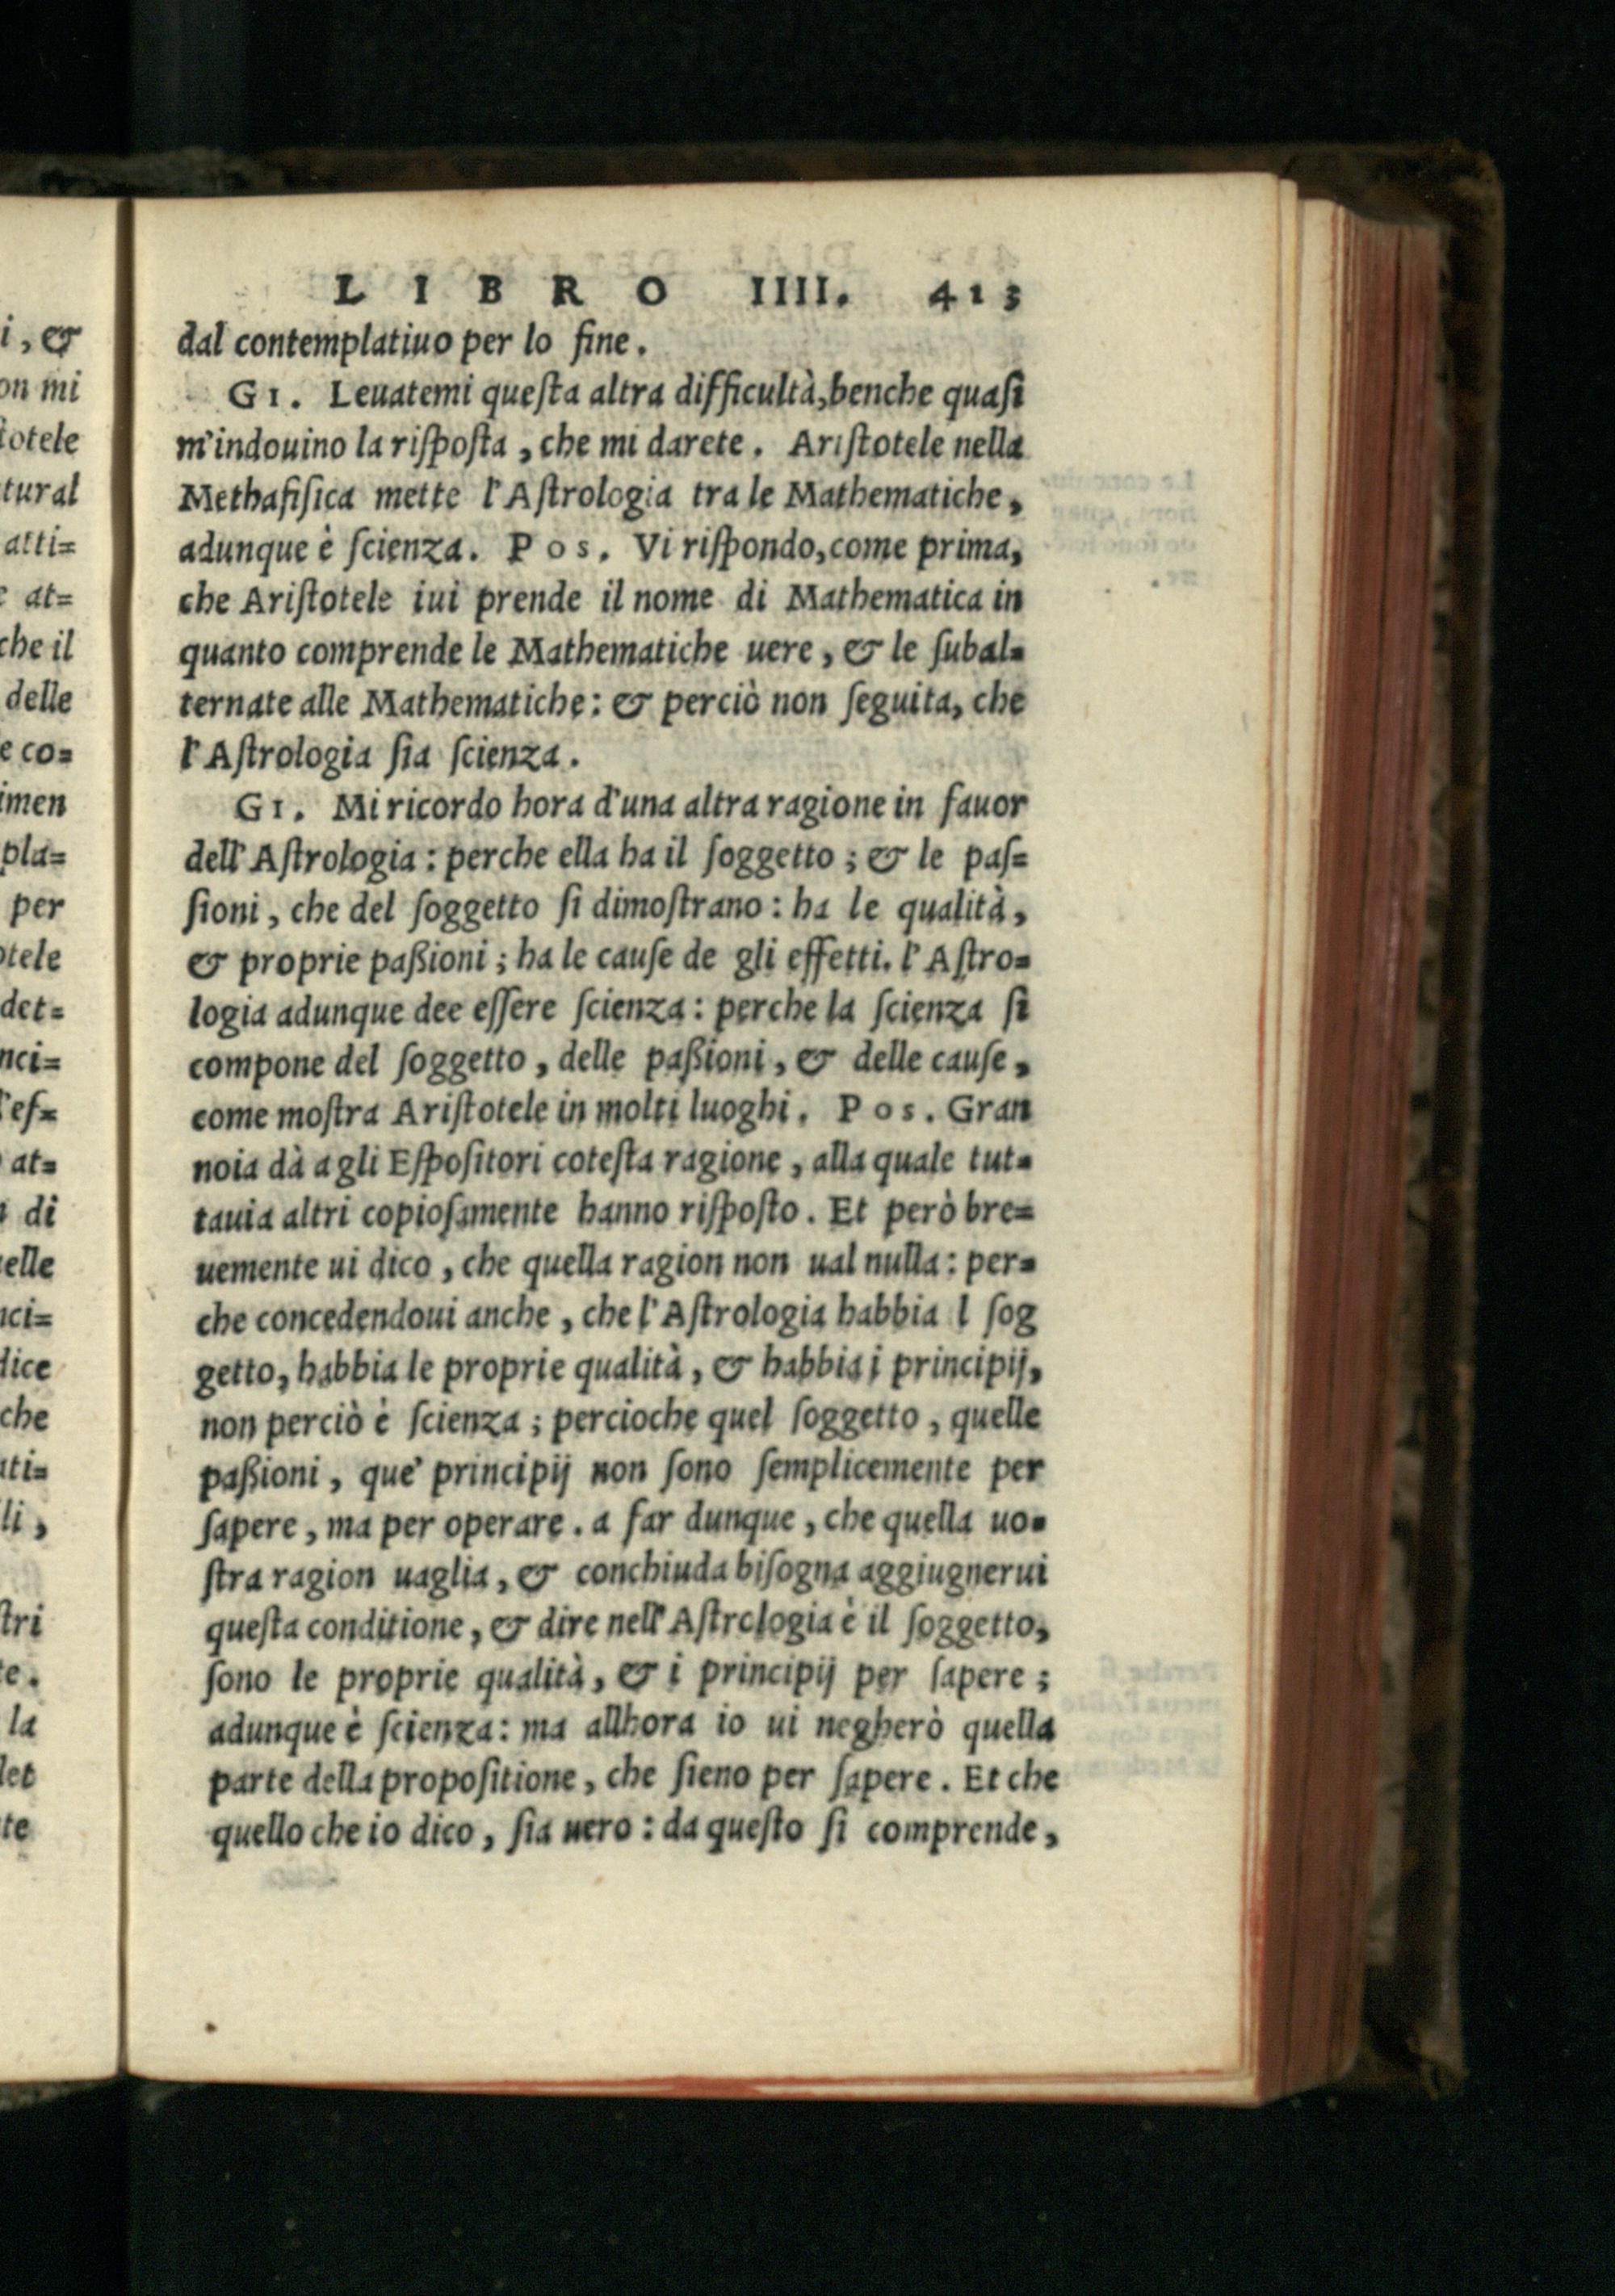 LIBRO IIII. 413
dal contemplatiuo per lo fine.
GI. Leuatemi queſta altra difficultà, benche quaſi
m'indouino la riſpoſta, che mi darete. Ariſtotele nella
Methafiſica mette l'Aſtrologia tra le Mathematiche,
adunque è ſcienza. Pos. Vi riſpondo, come prima,
che Ariſtotele iui prende il nome di Mathematica in
quanto comprende le Mathematiche uere, & le ſubal=
ternate alle Mathematiche: & perciò non ſeguita, che
l'Aſtrologia ſia ſcienza.
GI. Mi ricordo hora d'una altra ragione in fauor
dell'Aſtrologia: perche ella ha il ſoggetto; & le paſ=
ſioni, che del ſoggetto ſi dimoſtrano: ha le qualità,
& proprie paßioni; ha le cauſe de gli effetti. l'Aſtro=
logia adunque dee eſſere ſcienza: perche la ſcienza ſi
compone del ſoggetto, delle paßioni, & delle cauſe,
come moſtra Ariſtotele in molti luoghi. Pos. Gran
noia dà a gli Eſpoſitori coteſta ragione, alla quale tut=
tauia altri copioſamente hanno riſpoſto. Et però bre=
uemente ui dico, che quella ragion non ual nulla: per=
che concedendoui anche, che l'Aſtrologia habbia l ſog
getto, habbia le proprie qualità, & habbia i principij,
non perciò è ſcienza; percioche quel ſoggetto, quelle
paßioni, que' principij non ſono ſemplicemente per
ſapere, ma per operare. a far dunque, che quella uo=
ſtra ragion uaglia, & conchiuda biſogna aggiugnerui
queſta conditione, & dire nell'Aſtrologia è il ſoggetto,
ſono le proprie qualità, & i principij per ſapere;
adunque è ſcienza: ma allhora io ui negherò quella
parte della propoſitione, che ſieno per ſapere. Et che
quello che io dico, ſia uero: da queſto ſi comprende,